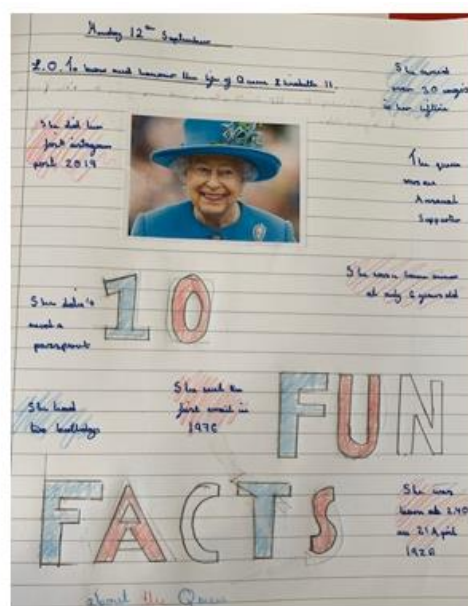 Monday 12th September
L.O. To know and honour the life of Queen Elizabeth II.
She owned
over 30 corgis
in her lifetime
She did her
first instagram
post 2019
The queen
was an
Arsenal
Supporter
She was a home owner
at only 6 years old
She didn't
need a
passport
10
She had
two birthdays
She sent the
first email in
1976
FUN
FACTS
She was
born at 2.40
on 21 April
1926
about the Queen